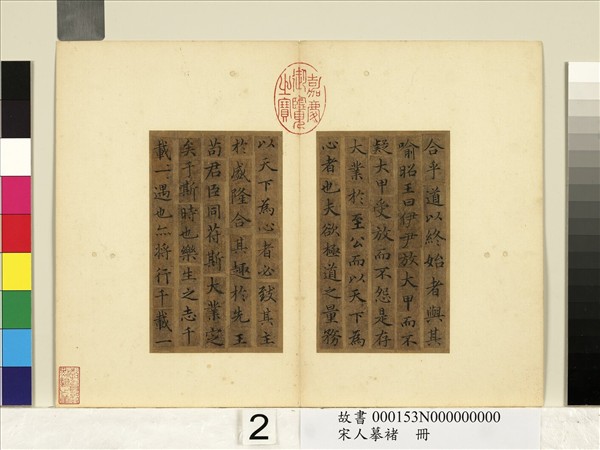 嘉慶
御覽
之寶
合乎道以終始者與其
喻昭王曰伊尹放大甲而不
疑大甲受放而不怨是存
大業於至公而以天下為
心者也夫欲極道之量務
以天下為心者必致其主
於盛隆合其趣於先王
苟君臣同苻斯大業定
矣于斯時也樂生之志千
載一遇也亦將行千載一
2
故書 000153N000000000
宋人摹褚 冊